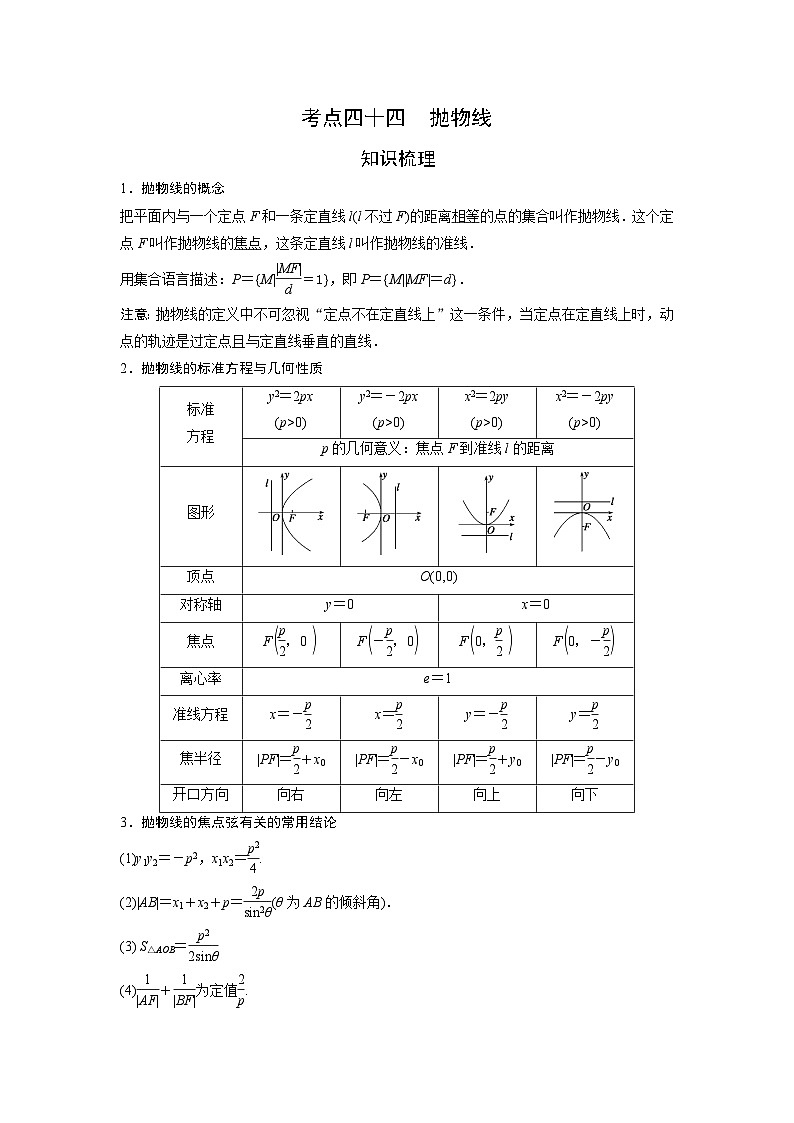 考点四十四 抛物线
知识梳理
1.抛物线的概念
把平面内与一个定点F和一条定直线l(l不过F)的距离相等的点的集合叫作抛物线.这个定
点F叫作抛物线的焦点,这条定直线l叫作抛物线的准线.
用集合语言描述:P={M||MF|/d=1},即P={M||MF|=d}.
注意:抛物线的定义中不可忽视“定点不在定直线上”这一条件,当定点在定直线上时,动
点的轨迹是过定点且与定直线垂直的直线.
2.抛物线的标准方程与几何性质
标准方程 y²=2px (p>0) y²=-2px (p>0) x²=2py (p>0) x²=-2py (p>0)
p的几何意义:焦点F到准线l的距离
图形 l y O F x y l F O x y F O x l y O l x F
顶点 O(0,0)
对称轴 y=0 x=0
焦点 F(p/2,0) F(-p/2,0) F(0,p/2) F(0,-p/2)
离心率 e=1
准线方程 x=-p/2 x=p/2 y=-p/2 y=p/2
焦半径 |PF|=p/2+x₀ |PF|=p/2-x₀ |PF|=p/2+y₀ |PF|=p/2-y₀
开口方向 向右 向左 向上 向下
3.抛物线的焦点弦有关的常用结论
(1)y₁y₂=-p²,x₁x₂=p²/4.
(2)|AB|=x₁+x₂+p=2p/sin²θ(θ为AB的倾斜角).
(3) S△AOB=p²/2sinθ
(4)1/|AF|+1/|BF|为定值2/p.